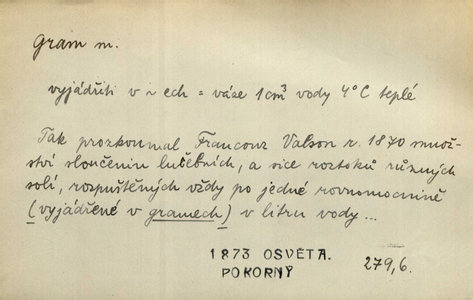 gram m.
vyjádřiti v i ech = váze 1 cm³ vody 4° C teplé
Tak prozkoumal Francouz Valson r. 1870 množ-
ství sloučenin lučebních, a sice roztoků různých
solí, rozpuštěných vždy po jedné rovnomocnině
(vyjádřené v gramech) v litru vody ...
1873 OSVĚTA.
POKORNÝ
279,6.